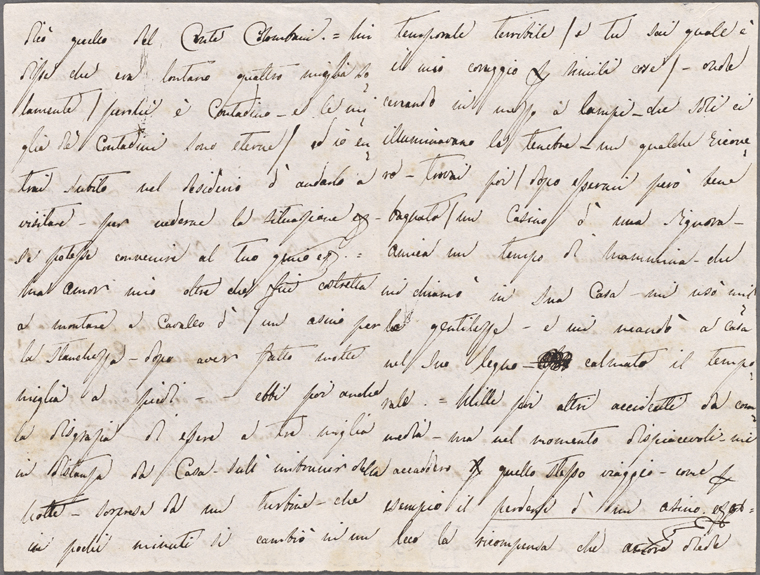 diò quello del Conte Colombani. = mi
disse che era lontano quattro miglia so
lamente / perchè è Contadino - e le mi
glia de Contadini sono eterne / ed io en
trai subito nel desiderio d'andarlo a
visitare - per vederne la situazione e
se potesse convenire al tuo genio =
ma amor mio oltre che fui costretta
a montare a Cavallo d' / un asino per
la stanchezza - dopo aver fatto molte
miglia a piedi - - ebbi poi anche
la disgrazia di essere a tre miglia
in distanza da Casa sull' imbrunir della
notte - sorpresa da un turbine - che
in pochi minuti si cambiò in un
temporale terribile / e tu sai quale è
il mio coraggio in simili cose / - onde
cercando in mezzo a lampi - che soli ci
illuminavano le tenebre - un qualche ricove
ro - trovai poi / dopo essermi però bene
bagnata / un Casino d' una Signora -
amica un tempo di Mammina - che
mi chiamò in sua Casa - mi usò mil
le gentilezze - e mi mandò a Casa
nel suo legno - calmato il tempo
rale. = Mille poi altri accidetti da com
media - ma nel momento dispiacevoli - mi
accaddero quello stesso viaggio - come
esempio il perdersi d' un asino
Ecco la ricompensa che diede